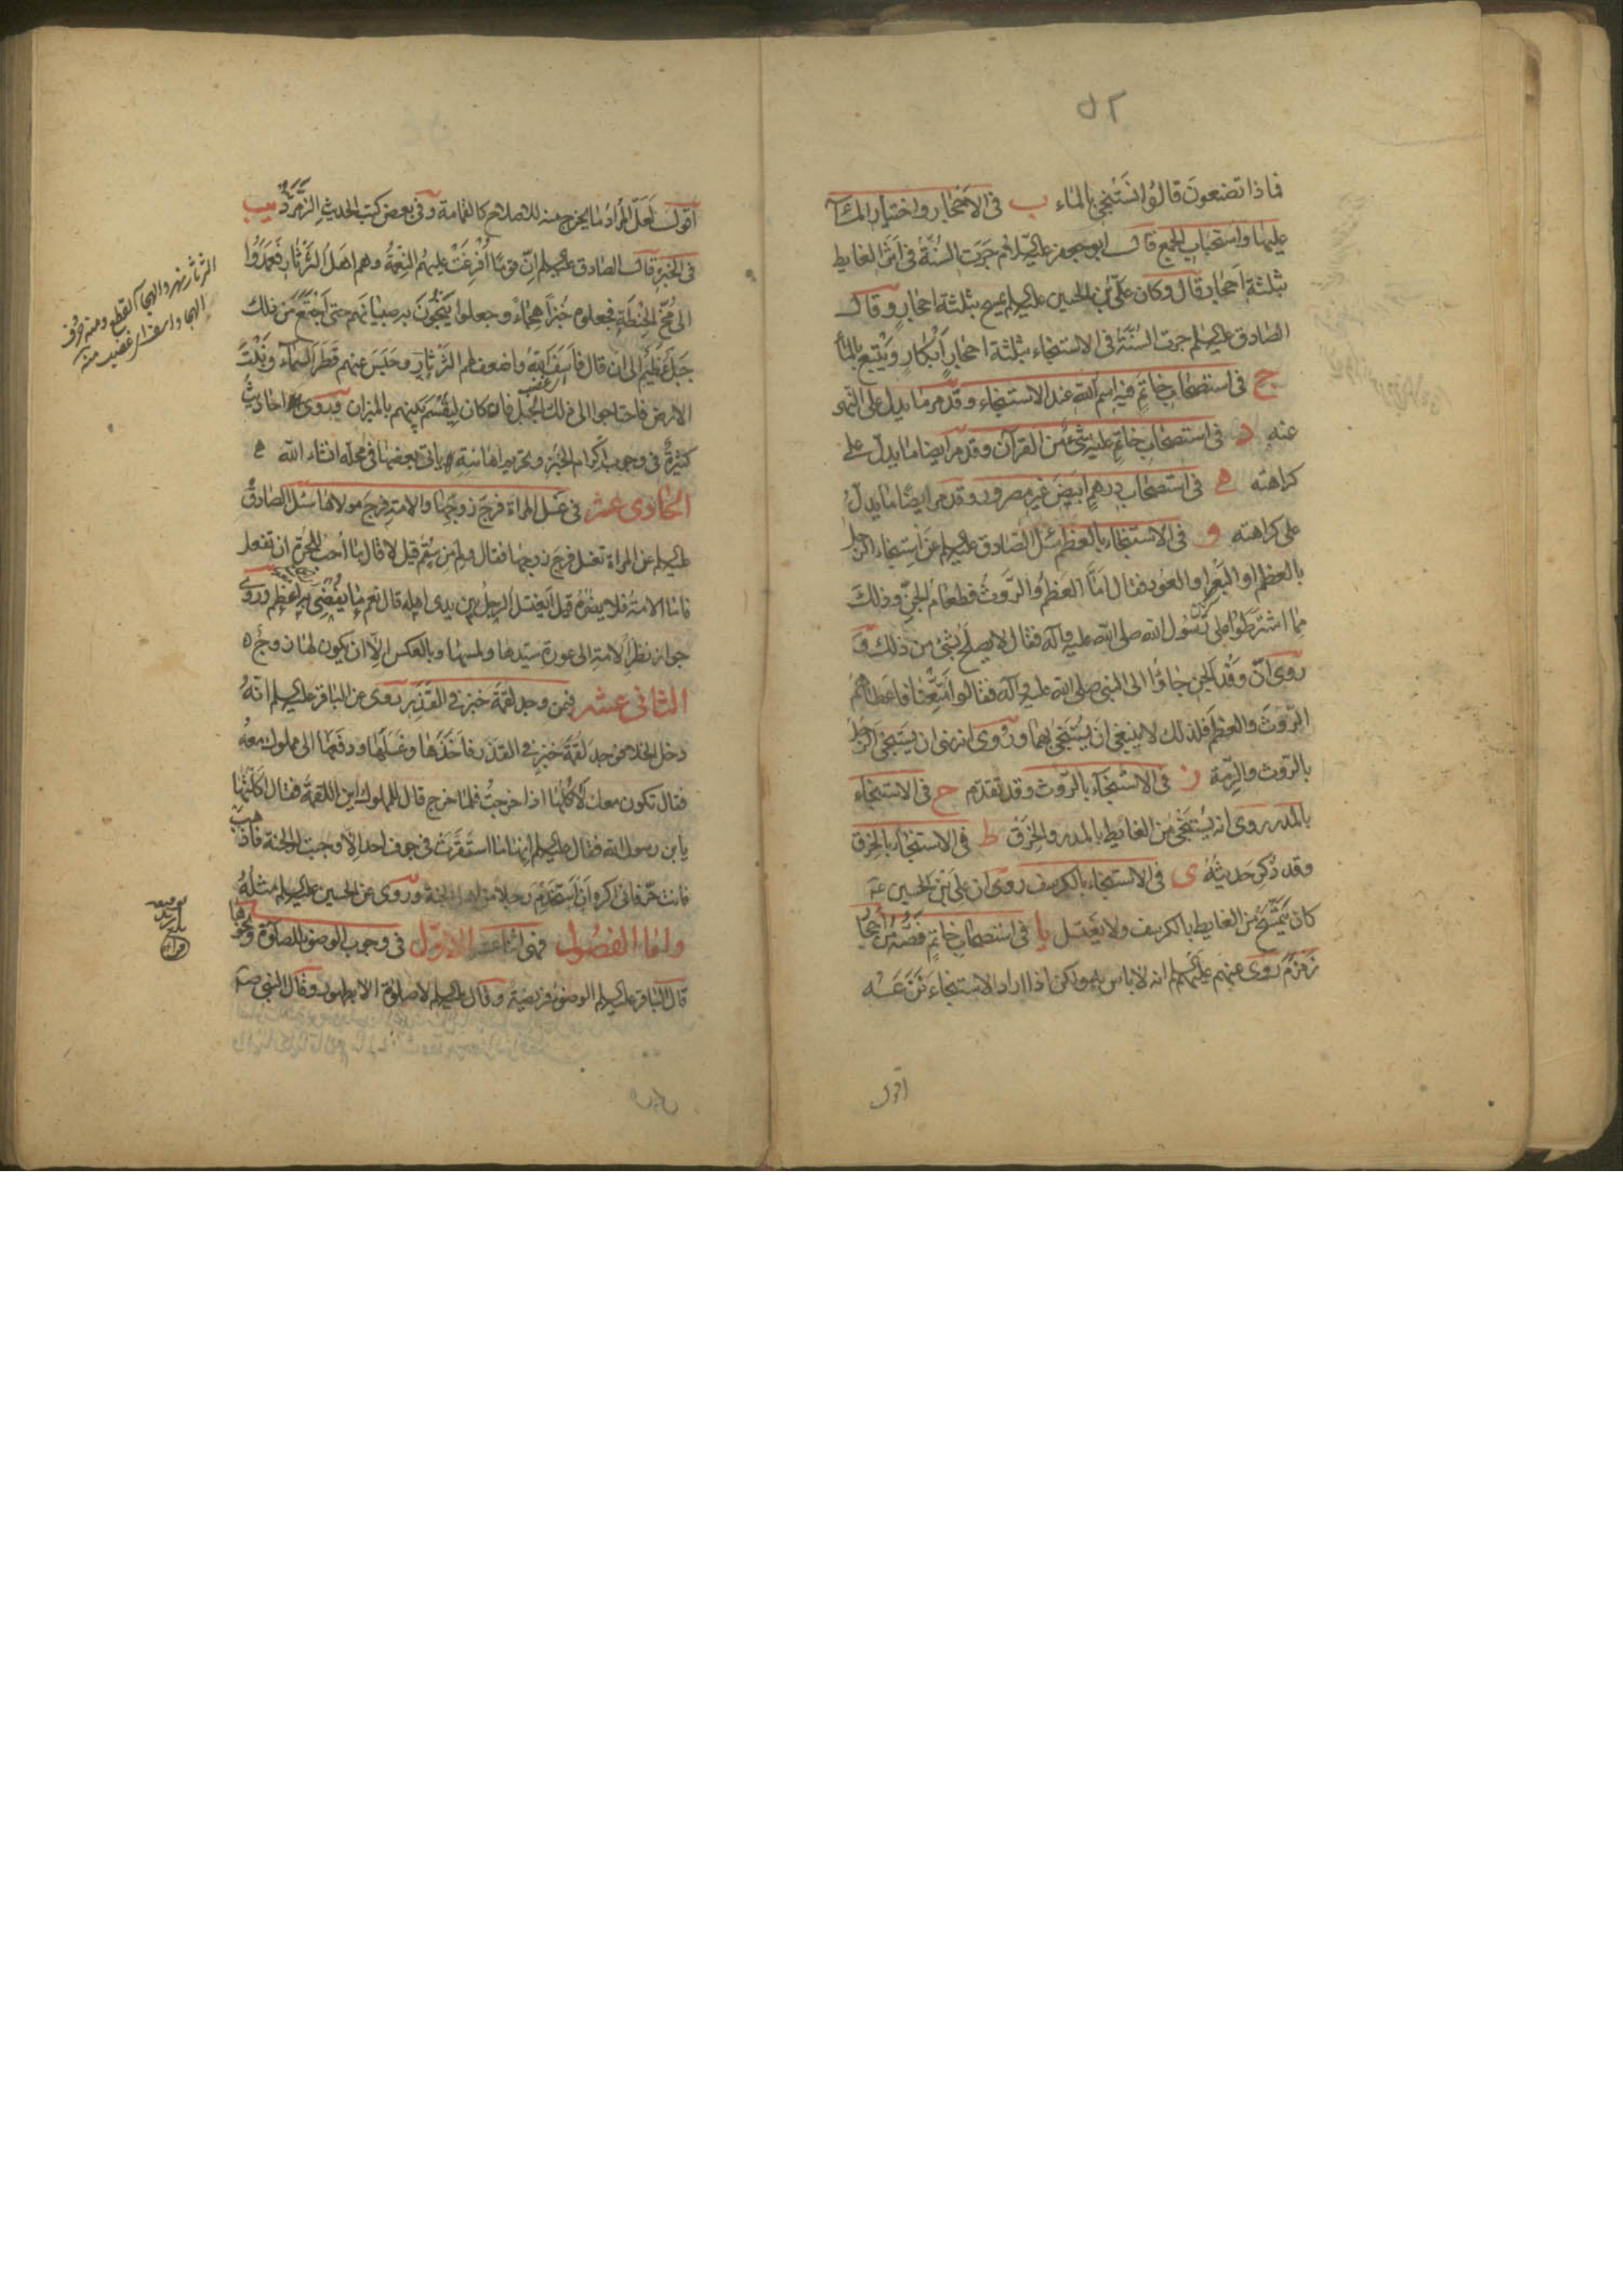 ٥٢
فماذا تصنعون قالوا نستنجي بالماء ب في الاحجار واختيار الماء
عليها واستحباب الجمع قال ابو جعفر عليه السلام جرت السنة في اثر الغايط
بثلثة احجار قال وكان علي بن الحسين عليه السلم يمسح بثلثة احجار وقال
الصادق عليه السلم جرت السنة في الاستنجاء بثلثة احجار ابكار ويتبع بالماء
ج في استصحاب خاتم فيه اسم الله عند الاستنجاء وقد مر ما يدل على النهى
عنه د في استصحاب خاتم عليه شئ من القرآن وقد مر ايضا ما يدل على
كراهته ه في استصحاب درهم ابيض غير مصرور وقد مر ايضا ما يدل
على كراهته و في الاستنجاء بالعظم سئل الصادق عليه السلم عن استنجاء الرجل
بالعظم او البعر او العود فقال اما العظم والروث فطعام الجن وذلك
مما اشترطوا على رسول الله صلى الله عليه وآله فقال لا يصلح بشئ من ذلك و
روى ان وفد الجن جاؤا الى النبي صلى الله عليه وآله فقالوا متعنا فاعطاهم
الروث والعظم فلذلك لا ينبغي ان يستنجي بهما وروى انه نهى ان يستنجي الرجل
بالروث والرمة ز في الاستنجاء بالروث وقد تقدم ح في الاستنجاء
بالمدر روى انه يستنجي من الغايط بالمدر والخزف ط في الاستنجاء بالخرق
وقد ذكر حديثه ى في الاستنجاء بالكرسف روى ان علي بن الحسين ع
كان يتمسح من الغايط بالكرسف ولا يغتسل يا في استصحاب خاتم فصه من احجار
زمزم روى عنهم عليهم السلم انه لا باس به ولكن اذا اراد الاستنجاء نزعه
اقول
اقول لعل المراد ما يخرج منه للاصلاح كالقمامة وفي بعض كتب الحديث الزمرد يب
في الخبز قال الصادق عليه السلم ان قوما افرغت عليهم النعمة وهم اهل الثرثار فعمدوا
الى مخ الحنطة فجعلوه خبزا هجاء وجعلوا ينجون به صبيانهم حتى اجتمع من ذلك
جبل عظيم الى ان قال فاسف الله واضعف لهم الثرثار وحبس عنهم قطر السماء ونبت
الارض فاحتاجوا الى ذلك الجبل فانه كان ليقسم بينهم بالميزان وروى احاديث
كثيرة في وجوب اكرام الخبز وتحريم اهانته ياتي بعضها في محله انشاء الله ه
الحادى عشر في غسل المراة فرج زوجها والامة فرج مولاها سئل الصادق
عليه السلم عن المراة تغسل فرج زوجها فقال ولم من سقم قيل لا قال ما احب للحرة ان تفعل
فاما الامة فلا يضره قيل ايغتسل الرجل بين يدى اهله قال نعم ما يفضي به اعظم وروى
جواز نظر الامة الى عورة سيدها ولمسها وبالعكس الا ان يكون لها زوج ه
الثاني عشر فيمن وجد لقمة خبز في القذر روى عن الباقر عليه السلم انه
دخل الخلا فوجد لقمة خبز في القذر فاخذها وغسلها ودفعها الى مملوك معه
فقال تكون معك لآكلها اذا خرجت فلما خرج قال للمملوك اين اللقمة فقال اكلتها
يا بن رسول الله فقال عليه السلم انها ما استقرت في جوف احد الا وجبت له الجنة فاذهب
فانت حر فاني اكره ان استخدم رجلا من اهل الجنة وروى عن الحسين عليه السلم مثله
واما الفصول فهي اثنا عشر الاول في وجوب الوضوء للصلوة ونحوها
قال الباقر عليه السلم الوضوء فريضة وقال عليه السلم لا صلوة الا بطهور وقال النبي ص
الثرثار نهر والهجا القطع ومنه حروف
الهجا واسف اى غضب منه